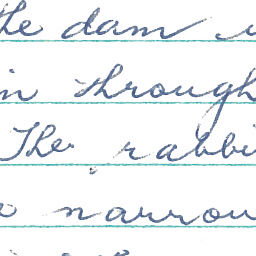 the dam
in through
The rabbi
narrow